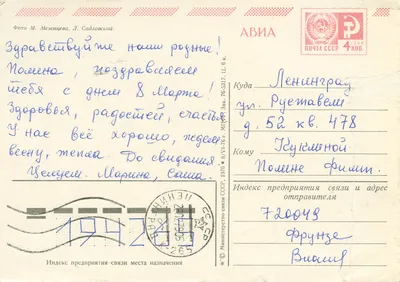 Фото М. Мезенцева, Л. Садловской.
Здравствуйте наши родные!
Полина, поздравляем
тебя с днем 8 Марта!
Здоровья, радостей, счастья
У нас всё хорошо, ждем
весну, тепла. До свидания
Целуем. Марина, саша.
АВИА
ПОЧТА СССР
4 КОП
Куда
Ленинград
ул. Руставели
д. 52 кв. 478
Кому
Полине Филип.
Индекс предприятия связи и адрес
отправителя
720049
Фрунзе
ЛЕНИНГРАД
СССР
194283
Индекс предприятия связи места назначения
© Министерство связи СССР